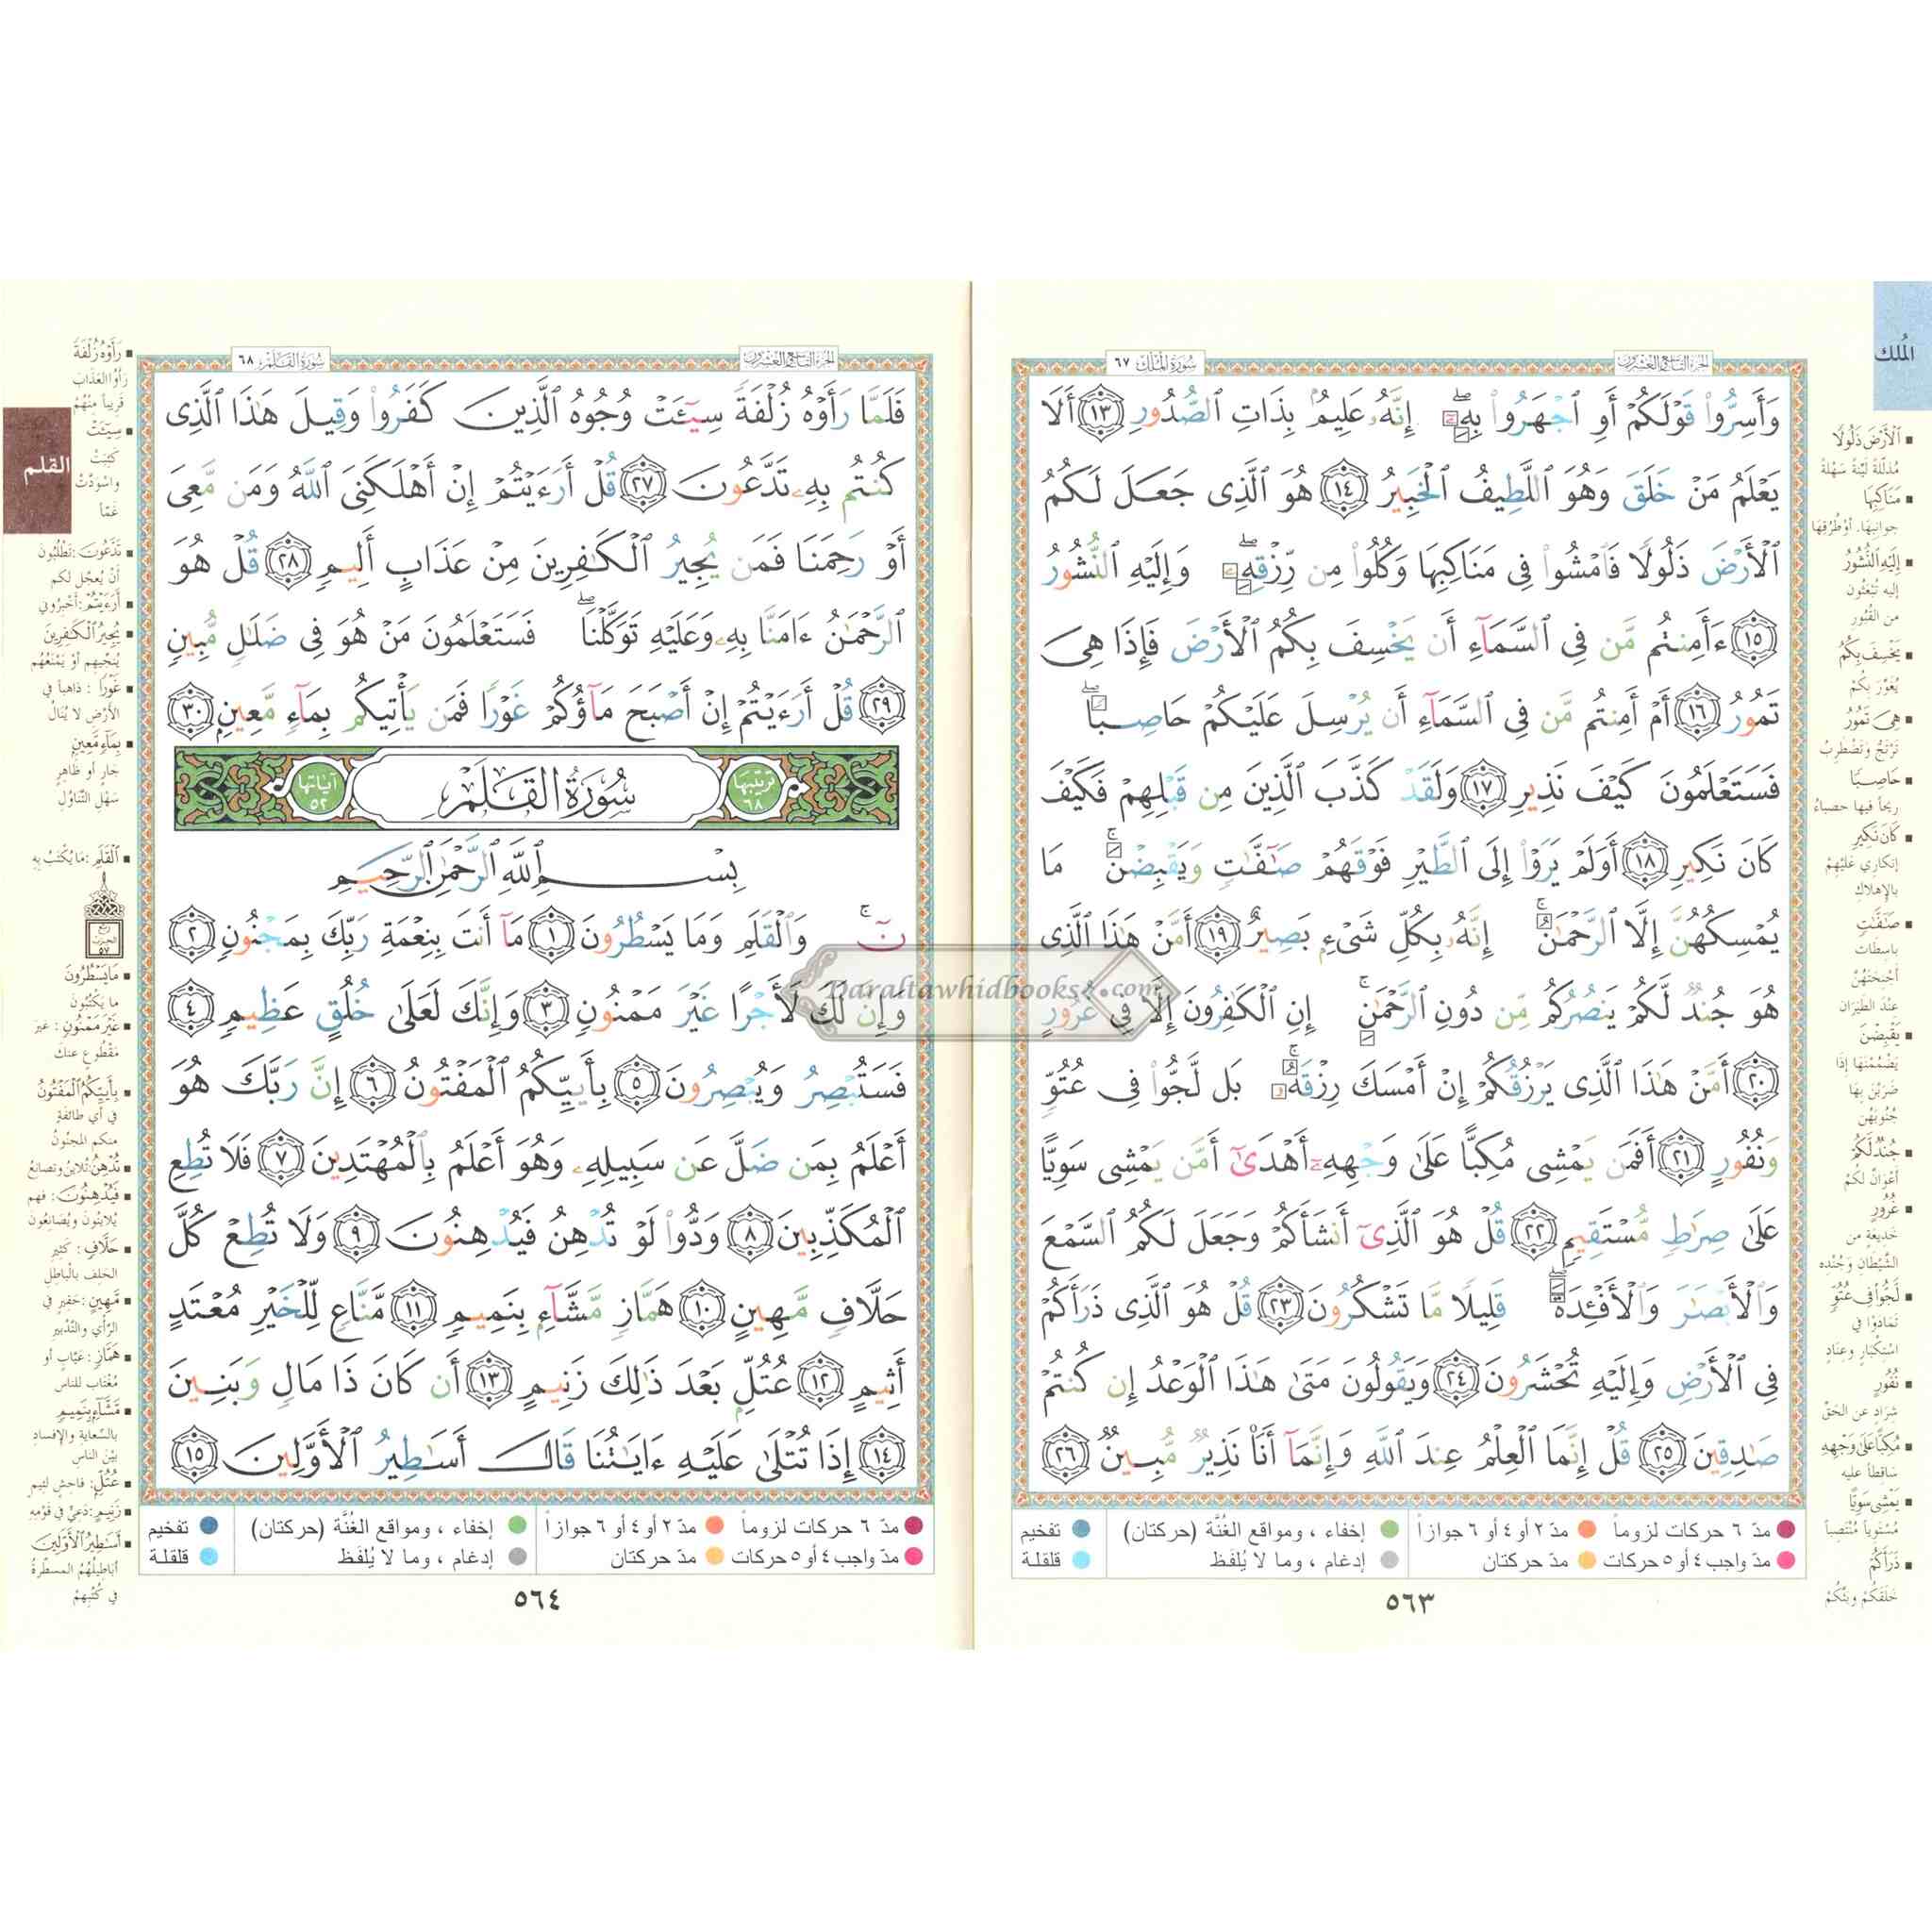 الجزء التاسع والعشرون
سورة الملك ٦٧
وَأَسِرُّوا۟ قَوْلَكُمْ أَوِ ٱجْهَرُوا۟ بِهِۦٓ ۖ إِنَّهُۥ عَلِيمٌۢ بِذَاتِ ٱلصُّدُورِ ١٣ أَلَا
يَعْلَمُ مَنْ خَلَقَ وَهُوَ ٱللَّطِيفُ ٱلْخَبِيرُ ١٤ هُوَ ٱلَّذِى جَعَلَ لَكُمُ
ٱلْأَرْضَ ذَلُولًا فَٱمْشُوا۟ فِى مَنَاكِبِهَا وَكُلُوا۟ مِن رِّزْقِهِۦ ۖ وَإِلَيْهِ ٱلنُّشُورُ
١٥ ءَأَمِنتُم مَّن فِى ٱلسَّمَآءِ أَن يَخْسِفَ بِكُمُ ٱلْأَرْضَ فَإِذَا هِىَ
تَمُورُ ١٦ أَمْ أَمِنتُم مَّن فِى ٱلسَّمَآءِ أَن يُرْسِلَ عَلَيْكُمْ حَاصِبًا ۖ
فَسَتَعْلَمُونَ كَيْفَ نَذِيرِ ١٧ وَلَقَدْ كَذَّبَ ٱلَّذِينَ مِن قَبْلِهِمْ فَكَيْفَ
كَانَ نَكِيرِ ١٨ أَوَلَمْ يَرَوْا۟ إِلَى ٱلطَّيْرِ فَوْقَهُمْ صَٰٓفَّٰتٍ وَيَقْبِضْنَ ۚ مَا
يُمْسِكُهُنَّ إِلَّا ٱلرَّحْمَٰنُ ۚ إِنَّهُۥ بِكُلِّ شَىْءٍۭ بَصِيرٌ ١٩ أَمَّنْ هَٰذَا ٱلَّذِى
هُوَ جُندٌ لَّكُمْ يَنصُرُكُم مِّن دُونِ ٱلرَّحْمَٰنِ ۚ إِنِ ٱلْكَٰفِرُونَ إِلَّا فِى غُرُورٍ
٢٠ أَمَّنْ هَٰذَا ٱلَّذِى يَرْزُقُكُمْ إِنْ أَمْسَكَ رِزْقَهُۥ ۚ بَل لَّجُّوا۟ فِى عُتُوٍّ
وَنُفُورٍ ٢١ أَفَمَن يَمْشِى مُكِبًّا عَلَىٰ وَجْهِهِۦٓ أَهْدَىٰٓ أَمَّن يَمْشِى سَوِيًّا
عَلَىٰ صِرَٰطٍ مُّسْتَقِيمٍ ٢٢ قُلْ هُوَ ٱلَّذِىٓ أَنشَأَكُمْ وَجَعَلَ لَكُمُ ٱلسَّمْعَ
وَٱلْأَبْصَٰرَ وَٱلْأَفْـِٔدَةَ ۖ قَلِيلًا مَّا تَشْكُرُونَ ٢٣ قُلْ هُوَ ٱلَّذِى ذَرَأَكُمْ
فِى ٱلْأَرْضِ وَإِلَيْهِ تُحْشَرُونَ ٢٤ وَيَقُولُونَ مَتَىٰ هَٰذَا ٱلْوَعْدُ إِن كُنتُمْ
صَٰدِقِينَ ٢٥ قُلْ إِنَّمَا ٱلْعِلْمُ عِندَ ٱللَّهِ وَإِنَّمَآ أَنَا۠ نَذِيرٌ مُّبِينٌ ٢٦
مدّ ٦ حركات لزوماً مدّ ٢ أو ٤ أو ٦ جوازاً إخفاء ، ومواقع الغُنَّة (حركتان) تفخيم
مدّ واجب ٤ أو ٥ حركات مدّ حركتان إدغام ، وما لا يُلفَظ قلقلة
٥٦٣
المُلك
ٱلْأَرْضَ ذَلُولًا
مُذلّلةً ليّنةً سَهْلةً
مَنَاكِبِهَا
جوانِبِهَا. أوْ طُرُقِهَا
إِلَيْهِ ٱلنُّشُورُ
إليه تُبْعَثون
من القُبُور
يَخْسِفَ بِكُمُ
يُغَوِّرَ بِكُمْ
هِىَ تَمُورُ
تَرْتَجُّ وَتَضْطَرِبُ
حَاصِبًا
ريحاً فيها حصباءُ
كَانَ نَكِيرِ
إنكاري عَلَيْهِمْ
بالإهلاك
صَٰٓفَّٰتٍ
باسطات
أجْنِحَتَهُنَّ
عِنْدَ الطَّيَرَانِ
يَقْبِضْنَ
يَضْمُمْنَهَا إذَا
ضَرَبْنَ بِهَا
جُنُوبَهُن
جُندٌ لَّكُمْ
أعْوَانٌ لكُمْ
غُرُورٍ
خَدِيعَةٍ من
الشَّيْطان وَجُنْدِهِ
لَّجُّوا۟ فِى عُتُوٍّ
تَمادَوْا في
اسْتِكْبَارٍ وعِنَادٍ
نُفُورٍ
شِرَادٍ عن الحَقّ
مُكِبًّا عَلَىٰ وَجْهِهِ
ساقطاً عليه
يَمْشِى سَوِيًّا
مُسْتوياً مُنْتَصِباً
ذَرَأَكُمْ
خَلقَكُمْ وبثّكُمْ
الجزء التاسع والعشرون
سورة القلم ٦٨
فَلَمَّا رَأَوْهُ زُلْفَةً سِيٓـَٔتْ وُجُوهُ ٱلَّذِينَ كَفَرُوا۟ وَقِيلَ هَٰذَا ٱلَّذِى
كُنتُم بِهِۦ تَدَّعُونَ ٢٧ قُلْ أَرَءَيْتُمْ إِنْ أَهْلَكَنِىَ ٱللَّهُ وَمَن مَّعِىَ
أَوْ رَحِمَنَا فَمَن يُجِيرُ ٱلْكَٰفِرِينَ مِنْ عَذَابٍ أَلِيمٍ ٢٨ قُلْ هُوَ
ٱلرَّحْمَٰنُ ءَامَنَّا بِهِۦ وَعَلَيْهِ تَوَكَّلْنَا ۖ فَسَتَعْلَمُونَ مَنْ هُوَ فِى ضَلَٰلٍ مُّبِينٍ
٢٩ قُلْ أَرَءَيْتُمْ إِنْ أَصْبَحَ مَآؤُكُمْ غَوْرًا فَمَن يَأْتِيكُم بِمَآءٍ مَّعِينٍۭ ٣٠
ترتيبها ٦٨ سُورَةُ القَلَمِ آياتها ٥٢
بِسْمِ ٱللَّهِ ٱلرَّحْمَٰنِ ٱلرَّحِيمِ
نٓ ۚ وَٱلْقَلَمِ وَمَا يَسْطُرُونَ ١ مَآ أَنتَ بِنِعْمَةِ رَبِّكَ بِمَجْنُونٍ ٢
وَإِنَّ لَكَ لَأَجْرًا غَيْرَ مَمْنُونٍ ٣ وَإِنَّكَ لَعَلَىٰ خُلُقٍ عَظِيمٍ ٤
فَسَتُبْصِرُ وَيُبْصِرُونَ ٥ بِأَييِّكُمُ ٱلْمَفْتُونُ ٦ إِنَّ رَبَّكَ هُوَ
أَعْلَمُ بِمَن ضَلَّ عَن سَبِيلِهِۦ وَهُوَ أَعْلَمُ بِٱلْمُهْتَدِينَ ٧ فَلَا تُطِعِ
ٱلْمُكَذِّبِينَ ٨ وَدُّوا۟ لَوْ تُدْهِنُ فَيُدْهِنُونَ ٩ وَلَا تُطِعْ كُلَّ
حَلَّافٍ مَّهِينٍ ١٠ هَمَّازٍ مَّشَّآءٍۭ بِنَمِيمٍ ١١ مَّنَّاعٍ لِّلْخَيْرِ مُعْتَدٍ
أَثِيمٍ ١٢ عُتُلٍّۭ بَعْدَ ذَٰلِكَ زَنِيمٍ ١٣ أَن كَانَ ذَا مَالٍ وَبَنِينَ
١٤ إِذَا تُتْلَىٰ عَلَيْهِ ءَايَٰتُنَا قَالَ أَسَٰطِيرُ ٱلْأَوَّلِينَ ١٥
مدّ ٦ حركات لزوماً مدّ ٢ أو ٤ أو ٦ جوازاً إخفاء ، ومواقع الغُنَّة (حركتان) تفخيم
مدّ واجب ٤ أو ٥ حركات مدّ حركتان إدغام ، وما لا يُلفَظ قلقلة
٥٦٤
القلم
رَأَوْهُ زُلْفَةً
رَأَوُا العَذَابَ
قَرِيباً مِنْهُمْ
سِيٓـَٔتْ
كَئِبَتْ
واسْوَدَّتْ
غَمّاً
تَدَّعُونَ: تَطْلُبُون
أنْ يُعجّل لكم
أَرَءَيْتُمْ: أخْبِرُوني
يُجِيرُ ٱلْكَٰفِرِينَ
يُنْجِيهِم أوْ يَمْنَعُهُم
غَوْرًا : ذاهباً في
الأرْضِ لا يُنَالُ
بِمَآءٍ مَّعِينٍ
جَارٍ أو ظَاهِرٍ
سَهْلِ التّناوُلِ
ٱلْقَلَمِ: مَا يُكْتَبُ بِهِ
ربع
الحزب
٥٧
مَا يَسْطُرُونَ
ما يَكْتُبُون
غَيْرَ مَمْنُونٍ: غير
مَقْطُوعٍ عنك
بِأَييِّكُمُ ٱلْمَفْتُونُ
في أي طائفةٍ
منكم المجنونُ
تُدْهِنُ: تُلاينُ وتصانعُ
فَيُدْهِنُونَ: فهم
يُلاينُونَ ويُصَانِعُون
حَلَّافٍ : كثير
الحَلِف بالْبَاطِل
مَّهِينٍ: حَقيرٍ في
الرَّأي والتّدْبير
هَمَّازٍ: عَيّابٍ أو
مُغْتاب للناس
مَّشَّآءٍ بِنَمِيمٍ
بالسِّعاية والإفسادِ
بَيْنَ الناس
عُتُلٍّ: فاحشٍ لئيم
زَنِيمٍ: دَعيٍّ في قَوْمِهِ
أَسَٰطِيرُ ٱلْأَوَّلِينَ
أباطيلُهُم المسطّرةُ
في كُتُبِهِمْ
Daraltawhidbooks.com